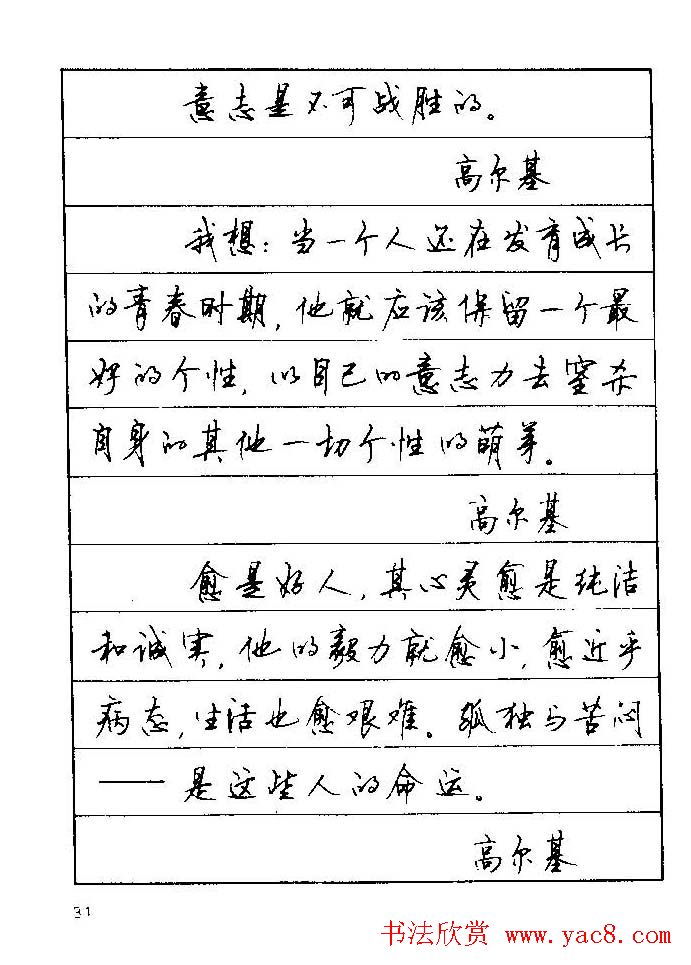 意志是不可战胜的。
高尔基
我想：当一个人还在发育成长
的青春时期，他就应该保留一个最
好的个性，以自己的意志力去窒杀
自身的其他一切个性的萌芽。
高尔基
愈是好人，其心灵愈是纯洁
和诚实，他的毅力就愈小，愈近乎
病态，生活也愈艰难。孤独与苦闷
——是这些人的命运。
高尔基
31
书法欣赏 www.yac8.com